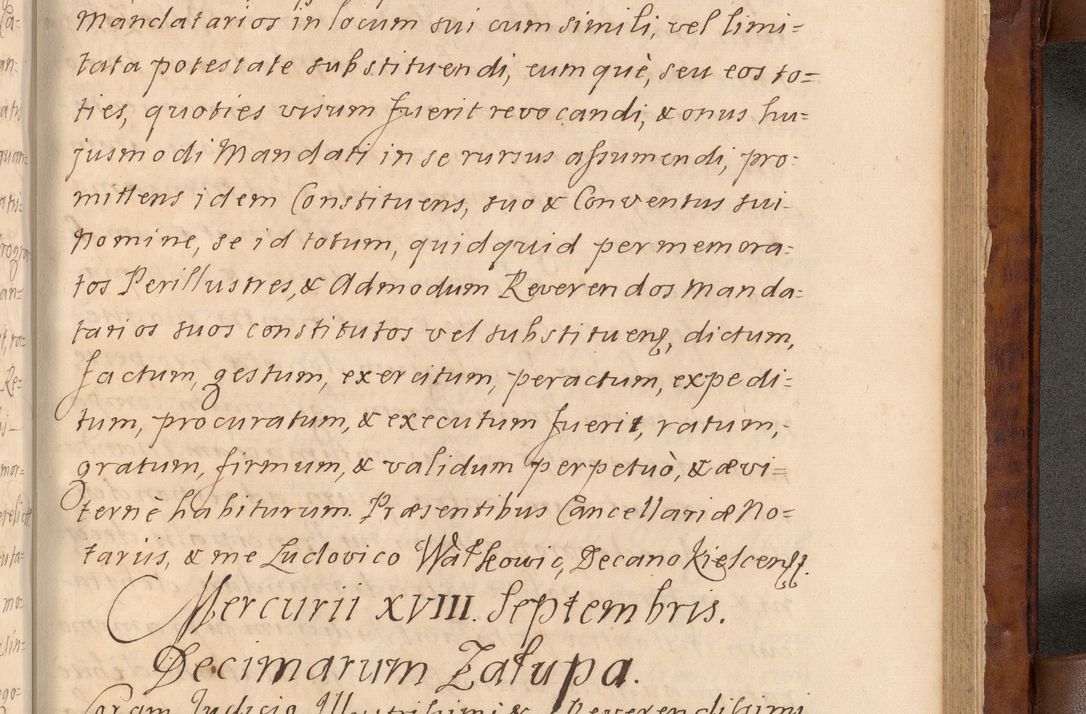 Mandatarios in locum sui cum simili, vel limi=
tata potestate substituendi, eumquè, seu eos to=
ties, quoties visum fuerit revocandi, & onus hu=
jusmodi Mandati in se rursus assumendi, pro=
mittens idem Constituens, suo & Conventus sui
Nomine, se id totum, quidquid per memora=
tos Perillustres, & Admodum Reverendos Manda=
tarios suos constitutos vel substituens, dictum,
factum, gestum, exercitum, peractum, expedi=
tum, procuratum, & executum fuerit, ratum,
gratum, firmum, & validum perpetuò, & ævi=
ternè habiturum. Præsentibus Cancellariæ No=
tarius, & me Ludovico Watkowic, Decano Kielcens.
Mercurii XVIII. Septembris.
Decimarum Załupa.
Coram Judicio Illustrissimi & Reverendissimi